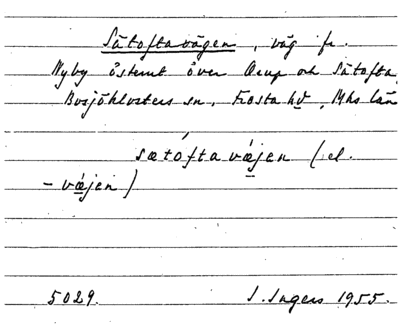 Såtoftavägen, väg fr.
Nyby österut över Orup och Såtofta,
Bosjöklosters sn, Frosta hd, Mhs län
sætófta væjen (el.
- væjen)
5029. I. Ingers 1955.